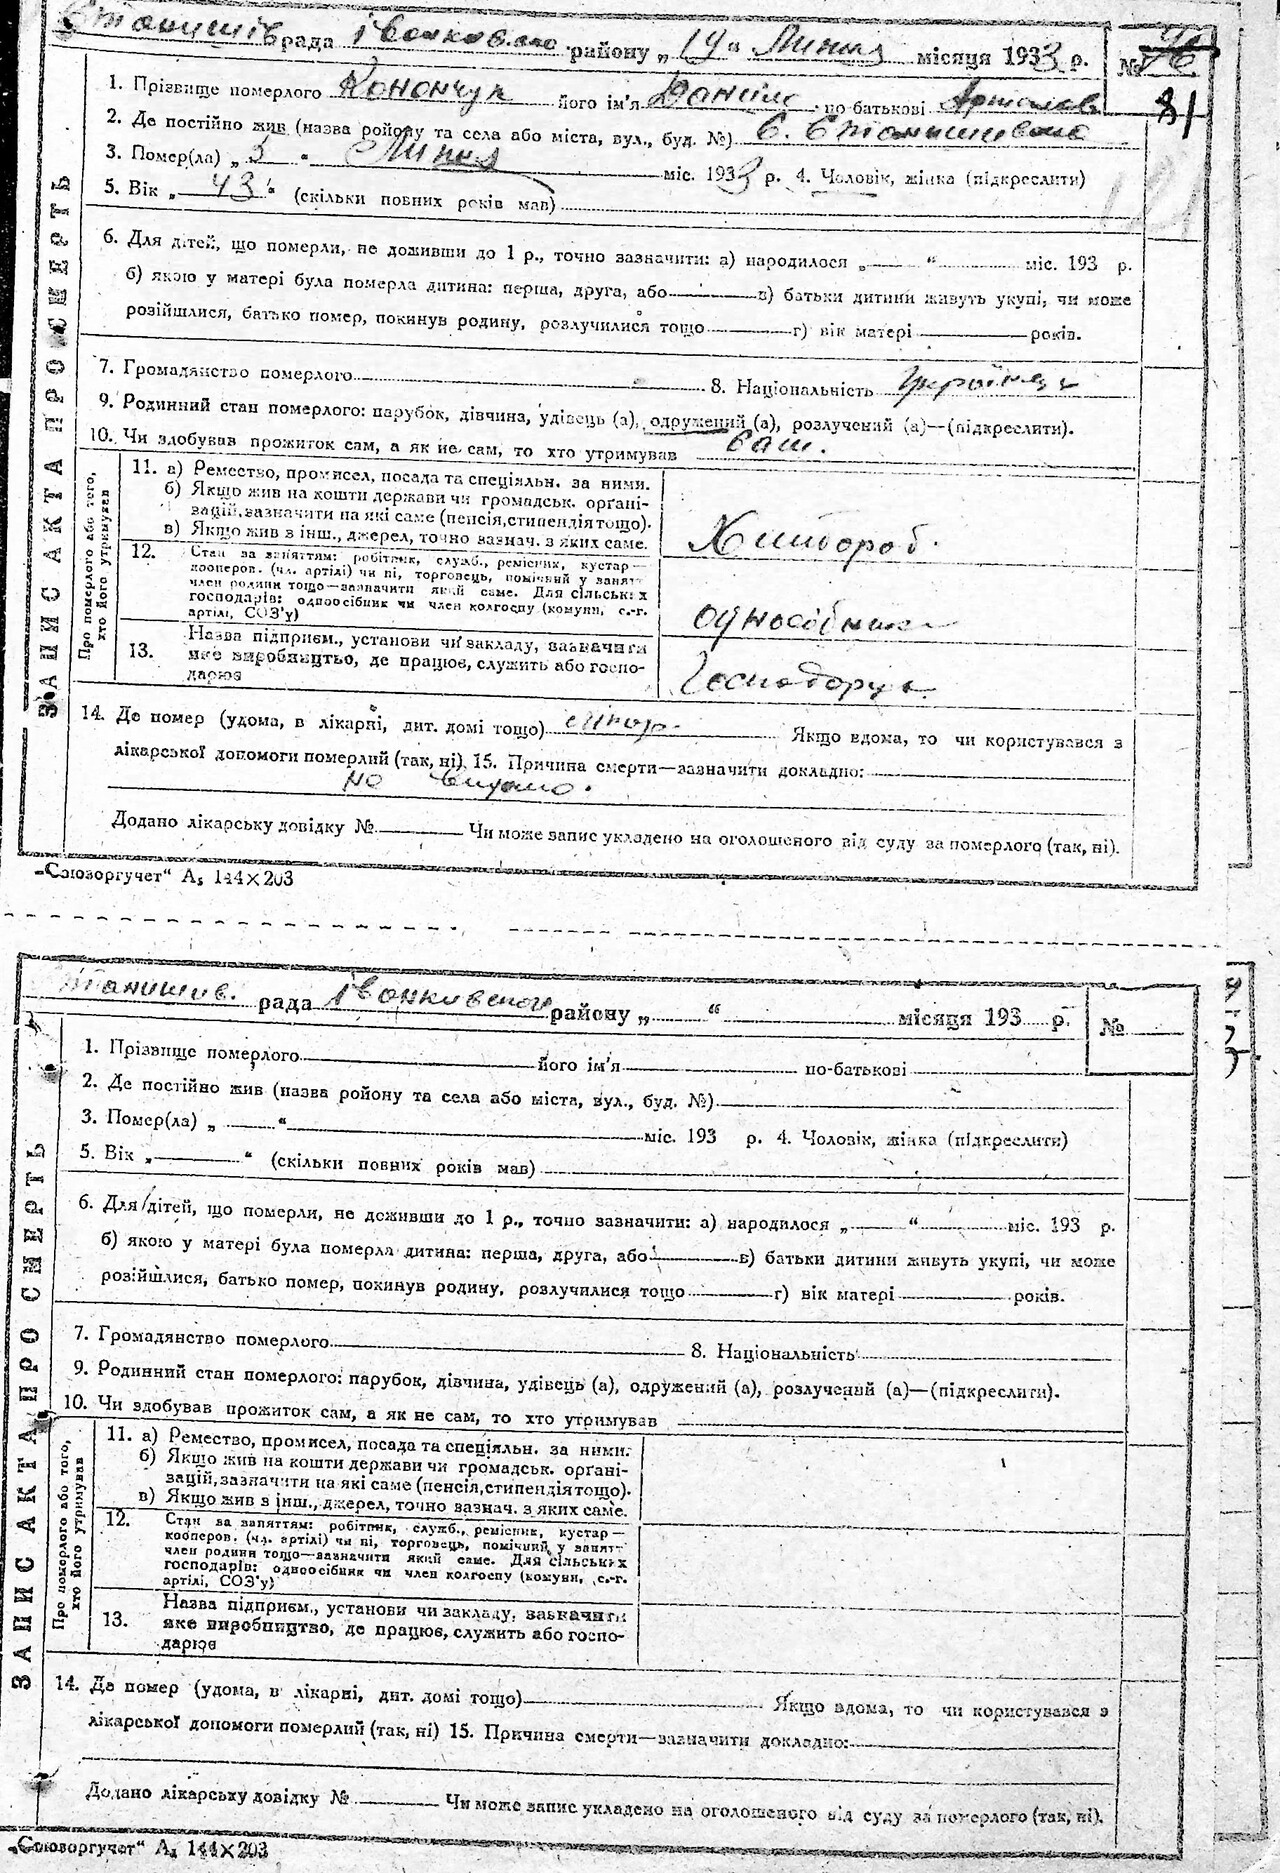 Станишів рада Іванківсько району „19“ Липня місяця 1933 р. № 76
81
1. Прізвище померлого Конончук його ім'я Даніло по-батькові
2. Де постійно жив (назва ройону та села або міста, вул., буд. №) С. Станишівка
3. Помер(ла) „ 5 “ Липня міс. 1933 р. 4. Чоловік, жінка (підкреслити)
5. Вік „ 43 “ (скільки повних років мав)
121
6. Для дітей, що померли, не доживши до 1 р., точно зазначити: а) народилося „ “ міс. 193 р.
б) якою у матері була померла дитина: перша, друга, або в) батьки дитини живуть укупі, чи може
розійшлися, батько помер, покинув родину, розлучилися тощо г) вік матері років.
7. Громадянство померлого 8. Національність Українець
9. Родинний стан померлого: парубок, дівчина, удівець (а), одружений (а), розлучений (а)—(підкреслити).
10. Чи здобував прожиток сам, а як не сам, то хто утримував Сам.
11. а) Ремество, промисел, посада та спеціяльн. за ними.
б) Якщо жив на кошти держави чи громадськ. орґані-
зацій, зазначити на які саме (пенсія, стипендія тощо).
в) Якщо жив з інш., джерел, точно зазнач. з яких саме.
Хлібороб.
12. Стан за заняттям: робітник, служб., ремісник, кустар—
кооперов. (чл. артілі) чи ні, торговець, помічний у занятт
член родини тощо—зазначити який саме. Для сільських
господарів: одноосібник чи член колгоспу (комуни, с.-г.
артілі, СОЗ'у)
одноосібник
13. Назва підприєм., установи чи закладу, зазначити
яке виробництво, де працює, служить або госпо-
дарює
Господарує
14. Де помер (удома, в лікарні, дит. домі тощо) Якщо вдома, то чи користувався з
лікарської допомоги померлий (так, ні) 15. Причина смерти—зазначити докладно:
но видомо.
Додано лікарську довідку № Чи може запис укладено на оголошеного від суду за померлого (так, ні).
ЗАПИС АКТА ПРО СМЕРТЬ
Про померлого або того,
хто його утримував
„Союзоргучет“ А₅ 144×203
Станишів. рада Іванківської району „ “ місяця 193 р. №
1. Прізвище померлого його ім'я по-батькові
2. Де постійно жив (назва ройону та села або міста, вул., буд. №)
3. Помер(ла) „ “ міс. 193 р. 4. Чоловік, жінка (підкреслити)
5. Вік „ “ (скільки повних років мав)
6. Для дітей, що померли, не доживши до 1 р., точно зазначити: а) народилося „ “ міс. 193 р.
б) якою у матері була померла дитина: перша, друга, або в) батьки дитини живуть укупі, чи може
розійшлися, батько помер, покинув родину, розлучилися тощо г) вік матері років.
7. Громадянство померлого 8. Національність
9. Родинний стан померлого: парубок, дівчина, удівець (а), одружений (а), розлучений (а)—(підкреслити).
10. Чи здобував прожиток сам, а як не сам, то хто утримував
11. а) Ремество, промисел, посада та спеціяльн. за ними.
б) Якщо жив на кошти держави чи громадськ. орґані-
зацій, зазначити на які саме (пенсія, стипендія тощо).
в) Якщо жив з інш., джерел, точно зазнач. з яких саме.
12. Стан за заняттям: робітник, служб., ремісник, кустар—
кооперов. (чл. артілі) чи ні, торговець, помічний у занятт
член родини тощо—зазначити який саме. Для сільських
господарів: одноосібник чи член колгоспу (комуни, с.-г.
артілі, СОЗ'у)
13. Назва підприєм., установи чи закладу, зазначити
яке виробництво, де працює, служить або госпо-
дарює
14. Де помер (удома, в лікарні, дит. домі тощо) Якщо вдома, то чи користувався з
лікарської допомоги померлий (так, ні) 15. Причина смерти—зазначити докладно:
Додано лікарську довідку № Чи може запис укладено на оголошеного від суду за померлого (так, ні).
ЗАПИС АКТА ПРО СМЕРТЬ
Про померлого або того,
хто його утримував
„Союзоргучет“ А₅ 144×203